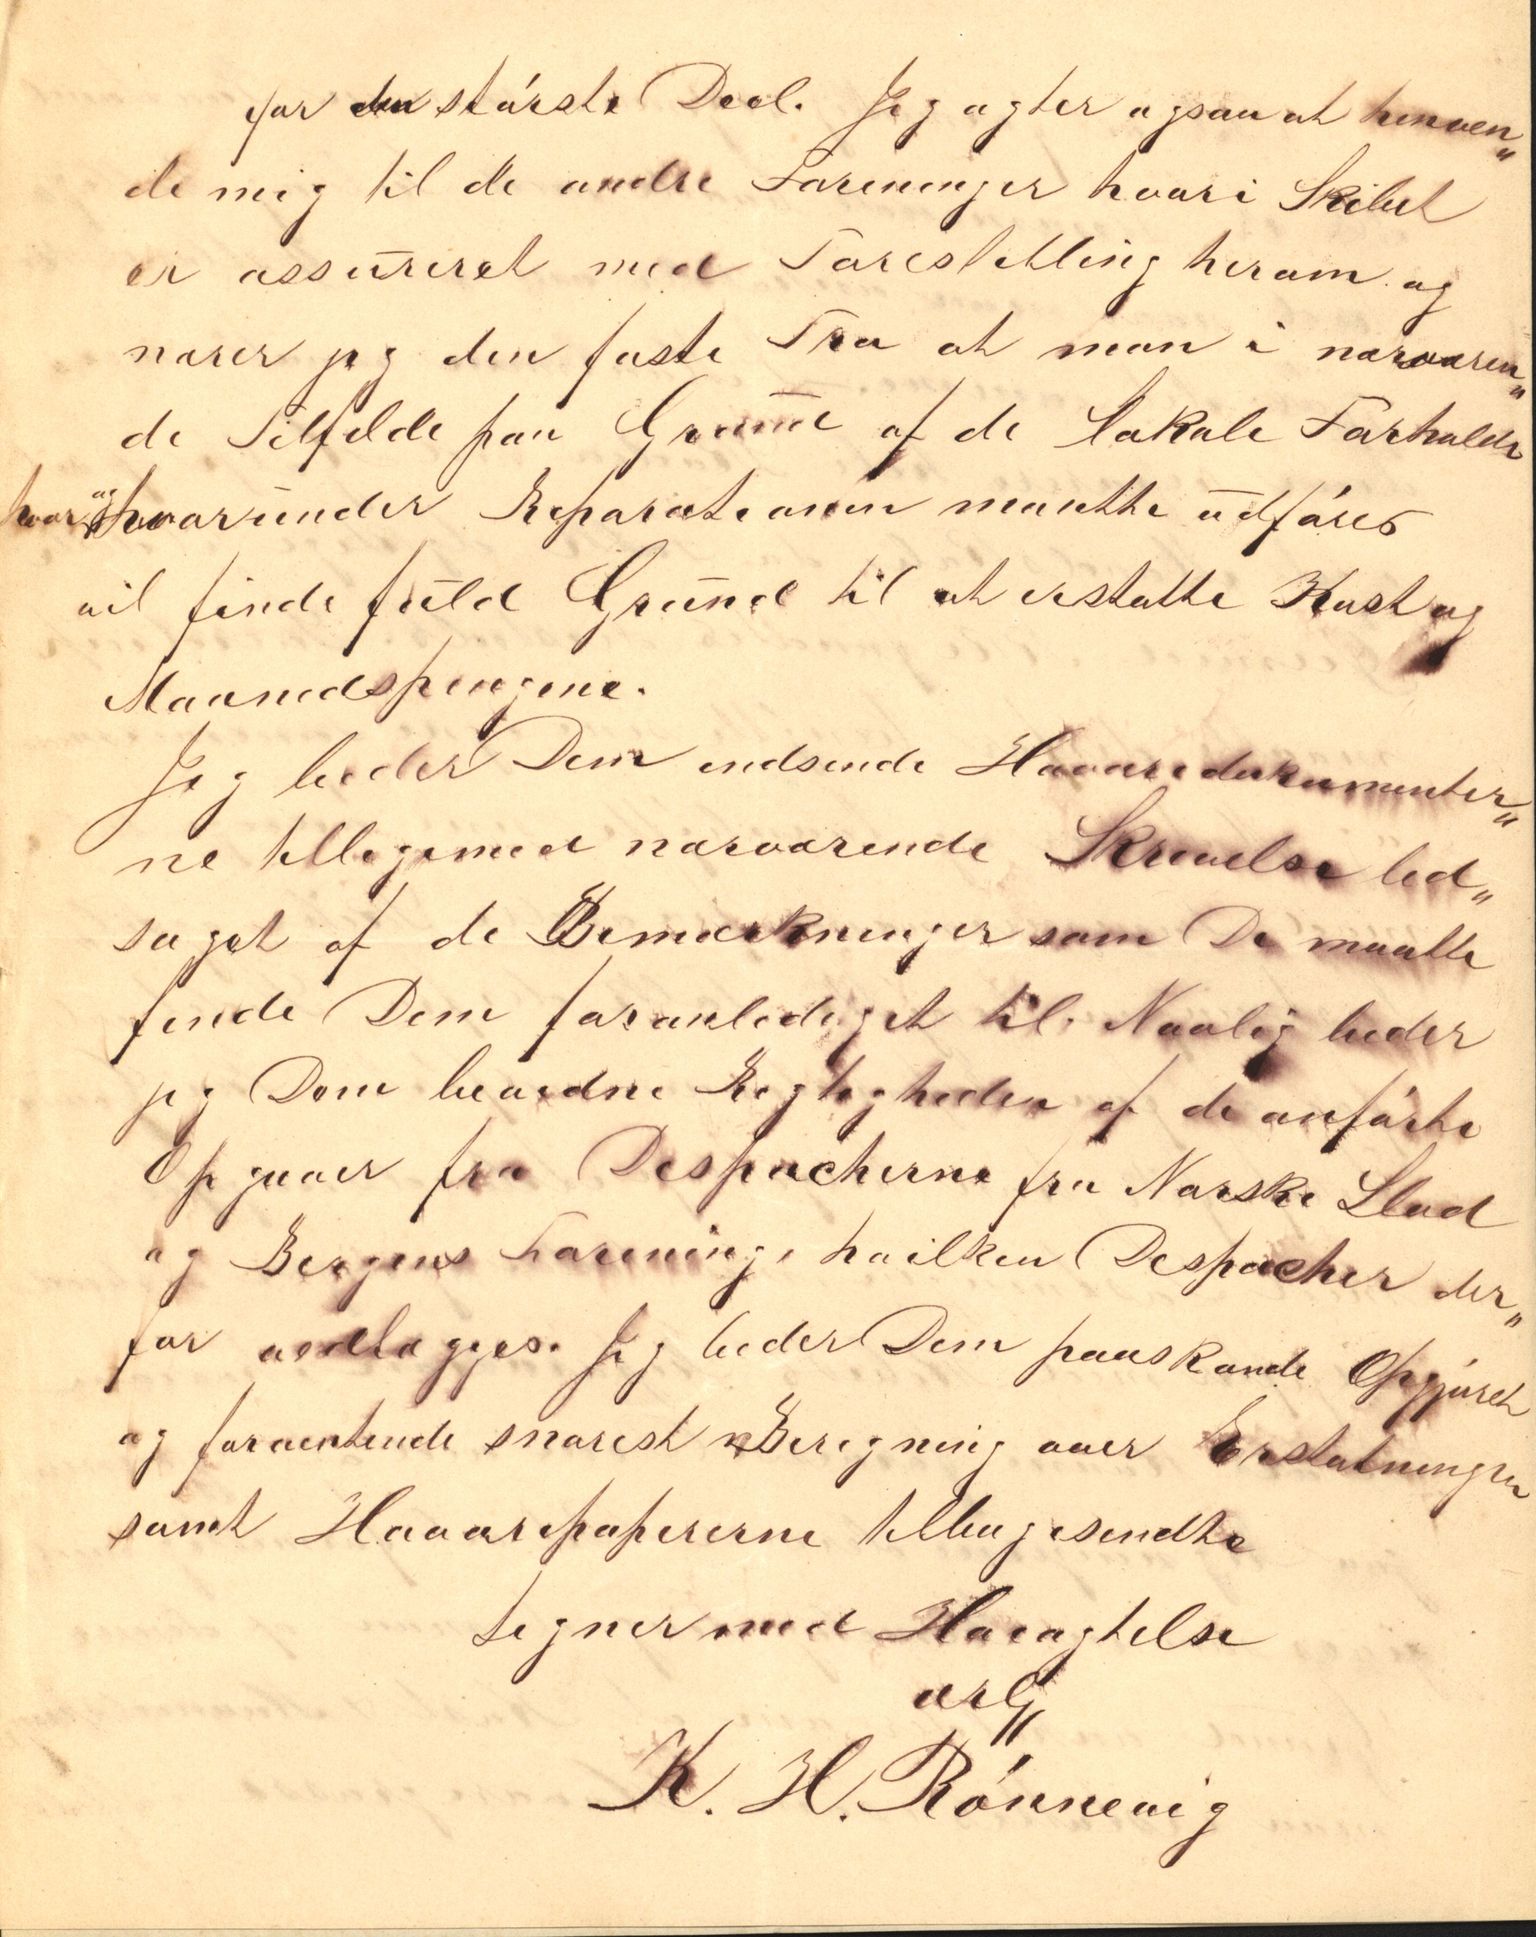 for den største Deel. Jeg agter ogsaa at henven„
de mig til de andre Foreninger hvori Skibet
er assureret med Forestilling herom og
nærer jeg den faste Tro at man i nærværen„
de Tilfelde paa Grund af de lokale Forholde
hvor og hvorunder Reparationen maatte udføres
vil finde fuld Grund til at erstatte Kost og
Maanedspengene.
Jeg beder Dem indsende Havaridokumenter„
ne tilligemed nærværende Skrivelse led„
saget af de Bemærkninger som De maatte
finde Dem foranlediget til. Navlig beder
jeg Dem bevidne Rigtigheden af de anførte
Opgaver fra Despacherne fra Norske Llod
og Bergens Forening, hvilken Despacher der„
for vedlegges. Jeg beder Dem paaskande Opgjøret
og forventende snarest Beregning over Erstatningen
samt Havaripapirerne tilbagesendte
tegner med Høiagtelse
ærb
K. H. Rønnevig